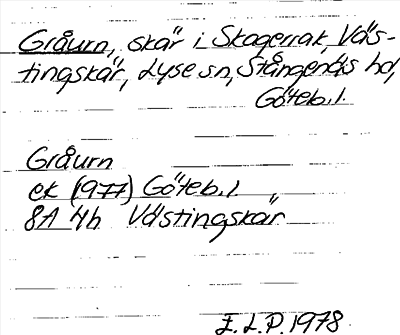 Gråurn, skär i Skagerrak, Väs-
tingskär, Lyse sn, Stångenäs hd,
Göteb. l.
Gråurn
ek (1977) Göteb. l
8A 4h Västingskär
E.L.P. 1978